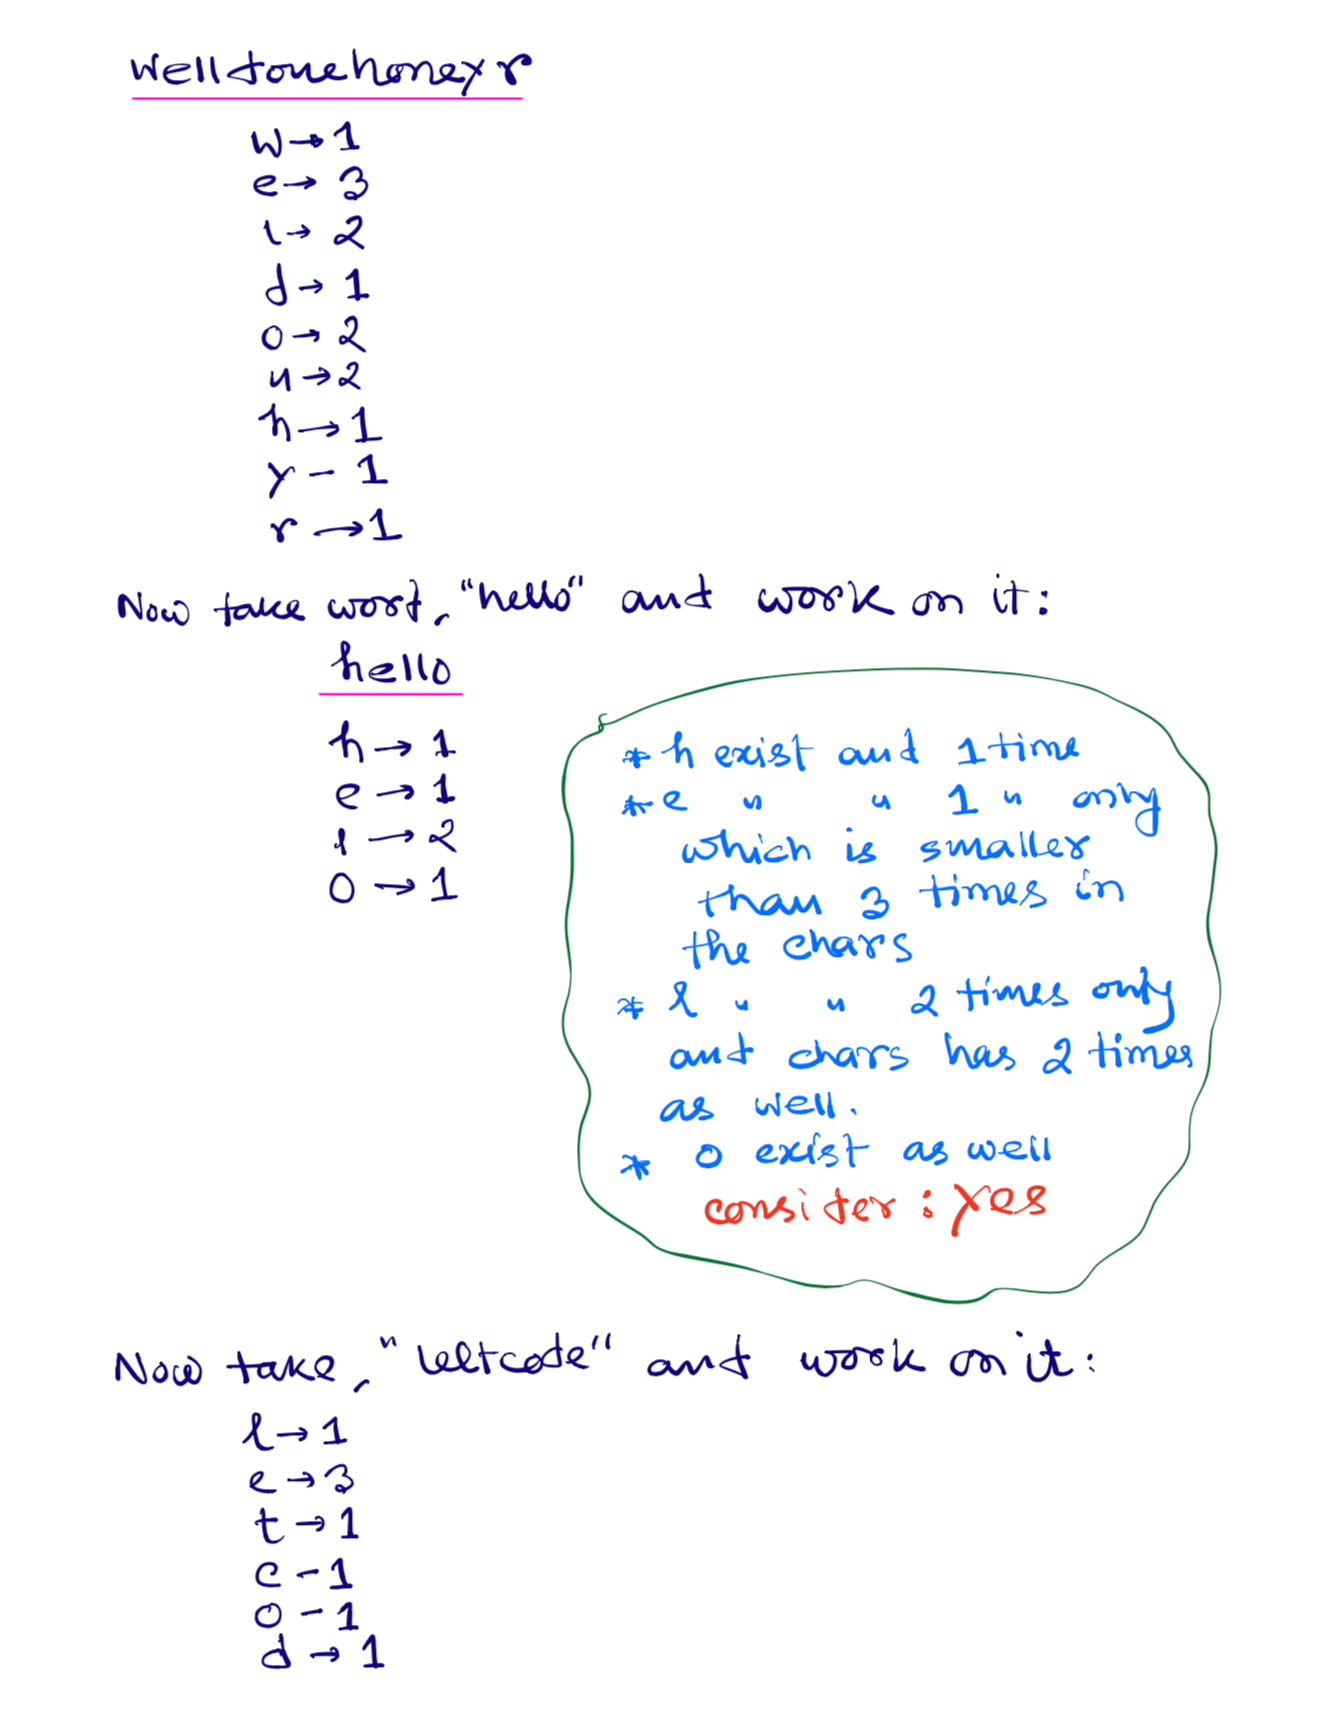 welldonehoneyr
w→1
e→3
l→2
d→1
o→2
n→2
h→1
y-1
r→1
Now take word, "hello" and work on it:
hello
h→1
e→1
l→2
o→1
* h exist and 1 time
* e " " 1 " only
which is smaller
than 3 times in
the chars
* l " " 2 times only
and chars has 2 times
as well.
* o exist as well
consider: yes
Now take, "leetcode" and work on it:
l→1
e→3
t→1
c-1
o-1
d→1